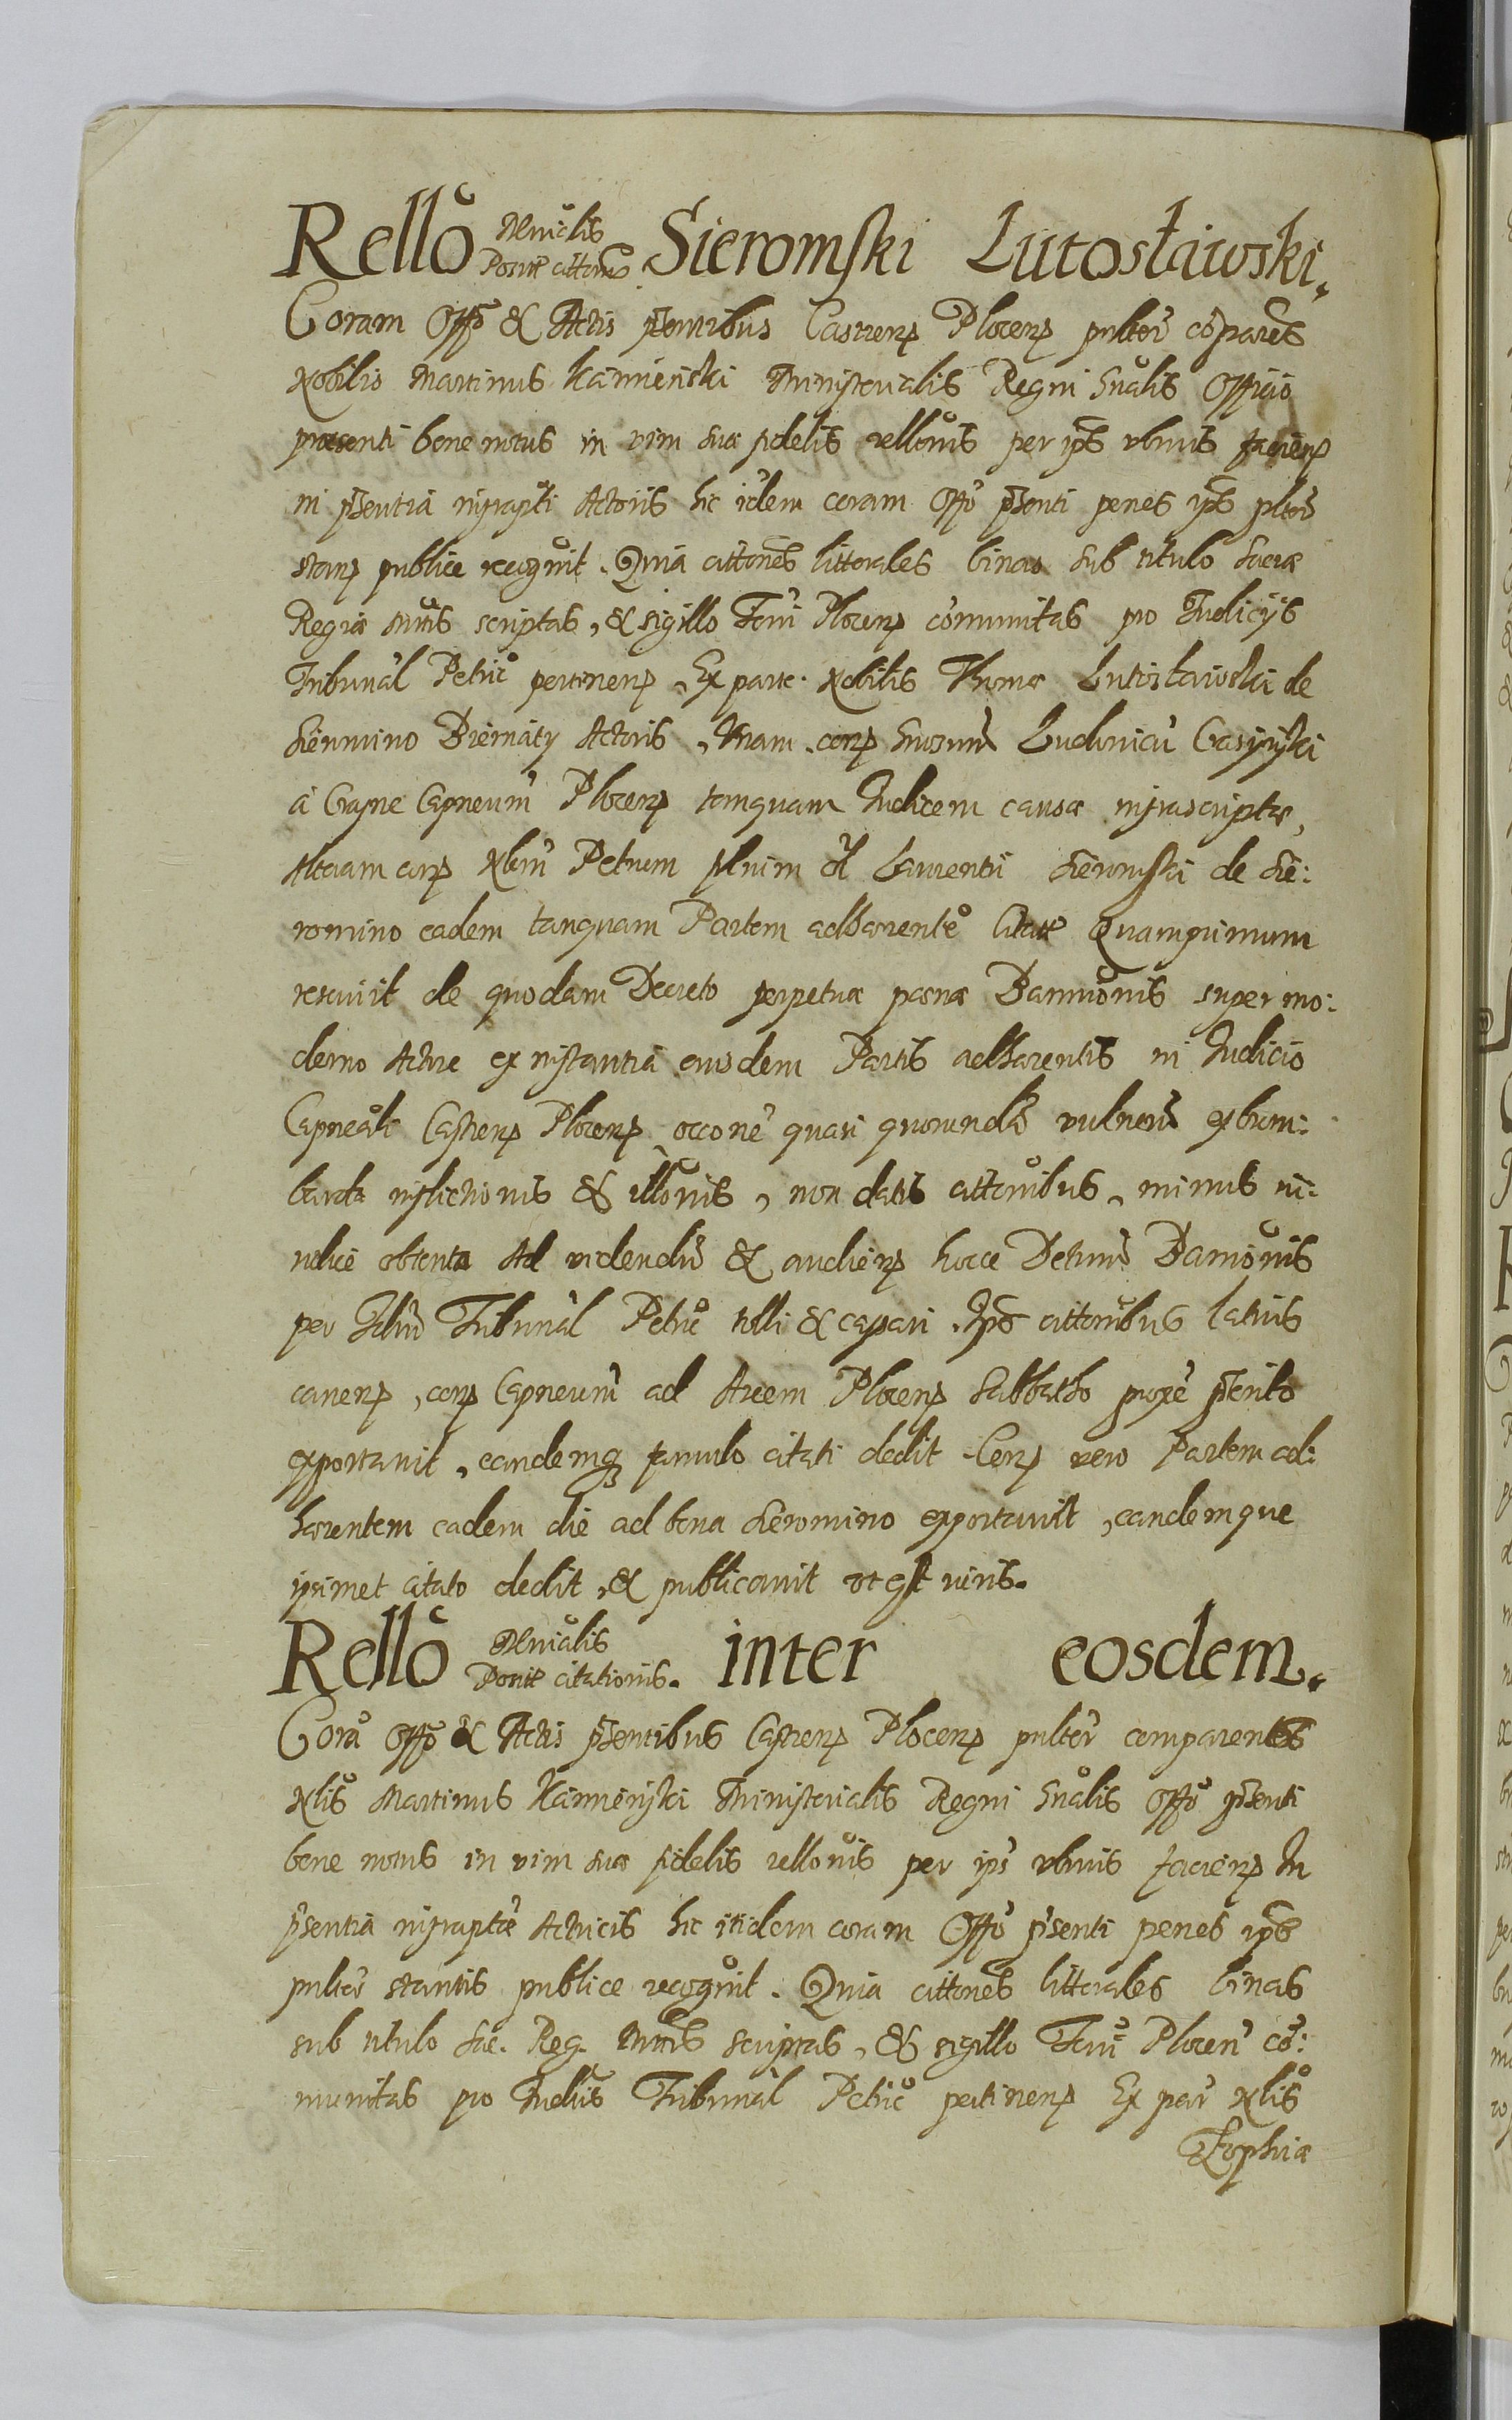 Rello Mnialis Positae cittonis Sieromski Lutosławski.
Coram Offo & Actis pntibus Castren Plocen pulter cóparens
Nobilis Martinus Kamienski Ministerialis Regni Gnalis Officio
praesenti bene notus in vim suae fidelis rellonis per ips vbnius facien
in pntia infrapti Actoris hic idem coram Offo pnti penes ips plter
stan publice recognit. Quia cittones litterales binas sub titulo Sacrae
Regiae Mttis scriptas, & sigillo Terrī Plocen comunitas pro Iudicijs
Tribunal Petric pertinen, Ex parte Nobilis Thomae Lutosławski de
Sieromino Biernaty Actoris, Unam con Gnosum Ludovicū Krasiński
a Krasne Capneum Plocen tanquam Iudicem causae infrascriptae,
Alteram con Nlem Petrum filium ol Laurentii Sieromski de Sie:
romino eadem tanquam Partem adhaerente Citatt Quamprimum
rescivit de quodam Decreto perpetuae poenae Bannionis super mo:
derno Actore ex instantia eiusdem Partis adhaerentis in Iudicio
Capneali Castren Plocen occone quasi quorundā vulnerū ex bom:
barda inflictionis & illonis, non datis cittonibus, minus iu:
ridice obtenta Ad videndū & audien hocce Detum Bannionis
per Idiū Tribunal Petric tolli & cassari. Ipis cittonibus latius
canen, con Capneum ad Arcem Plocen Sabbatho proxe pterito
exportavit, eandemq famulo citati dedit. Con vero Partem ad:
haerentem eadem die ad bona Sieromino exportavit, eandemque
ipsimet citato dedit, & publicavit vt est iuris.
Rello Mnialis Positae citationis. inter eosdem.
Corā Offo & Actis pntibus Castren Plocen pulter comparentes
Nlis Martinus Kamieński Ministerialis Regni Gnalis Offo pnti
bene notus in vim suae fidelis rellonis per ips vbnius facien In
pntia infraptae Actricis hic itidem coram Offo pnti penes ips
pulter stantis publice recognit. Quia cittones litterales binas
sub titulo Sac. Reg. Mttis scriptas, & sigillo Terrī Plocen co:
munitas pro Iudiis Tribunal Petric pertinen Ex par Nlis
Zophiae